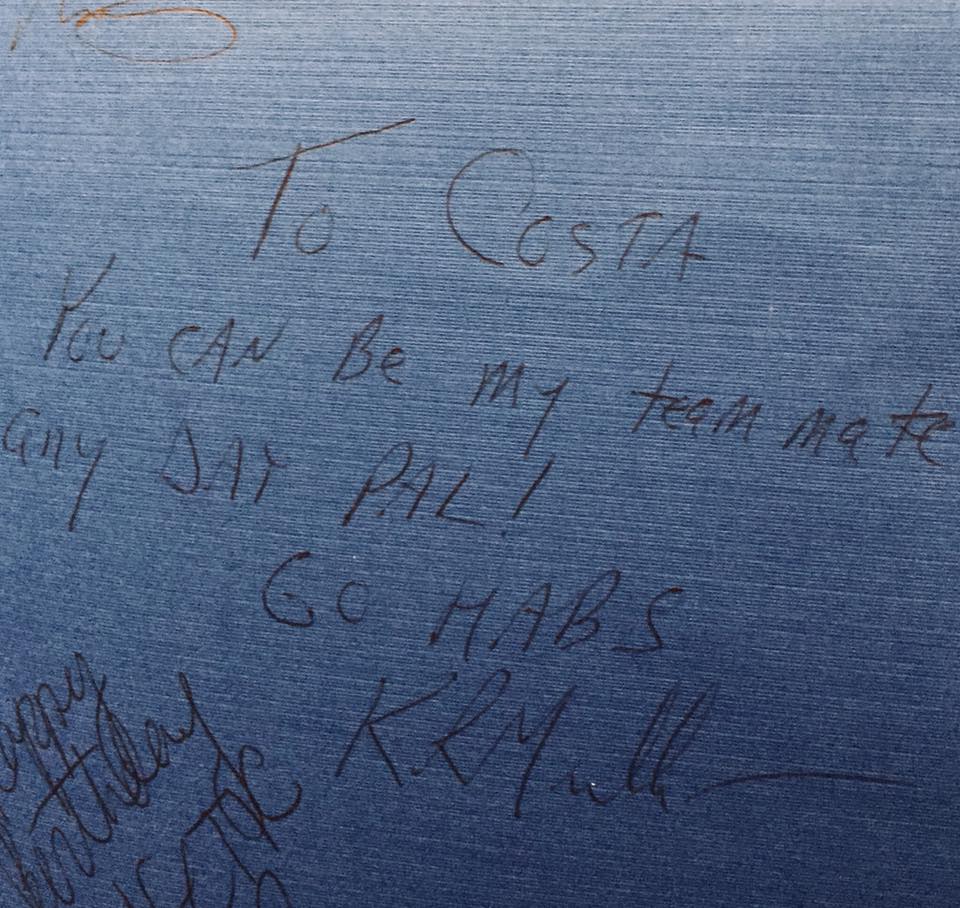 To COSTA
You CAN Be my team mate
any DAY PAL!
GO HABS
Happy
birthday